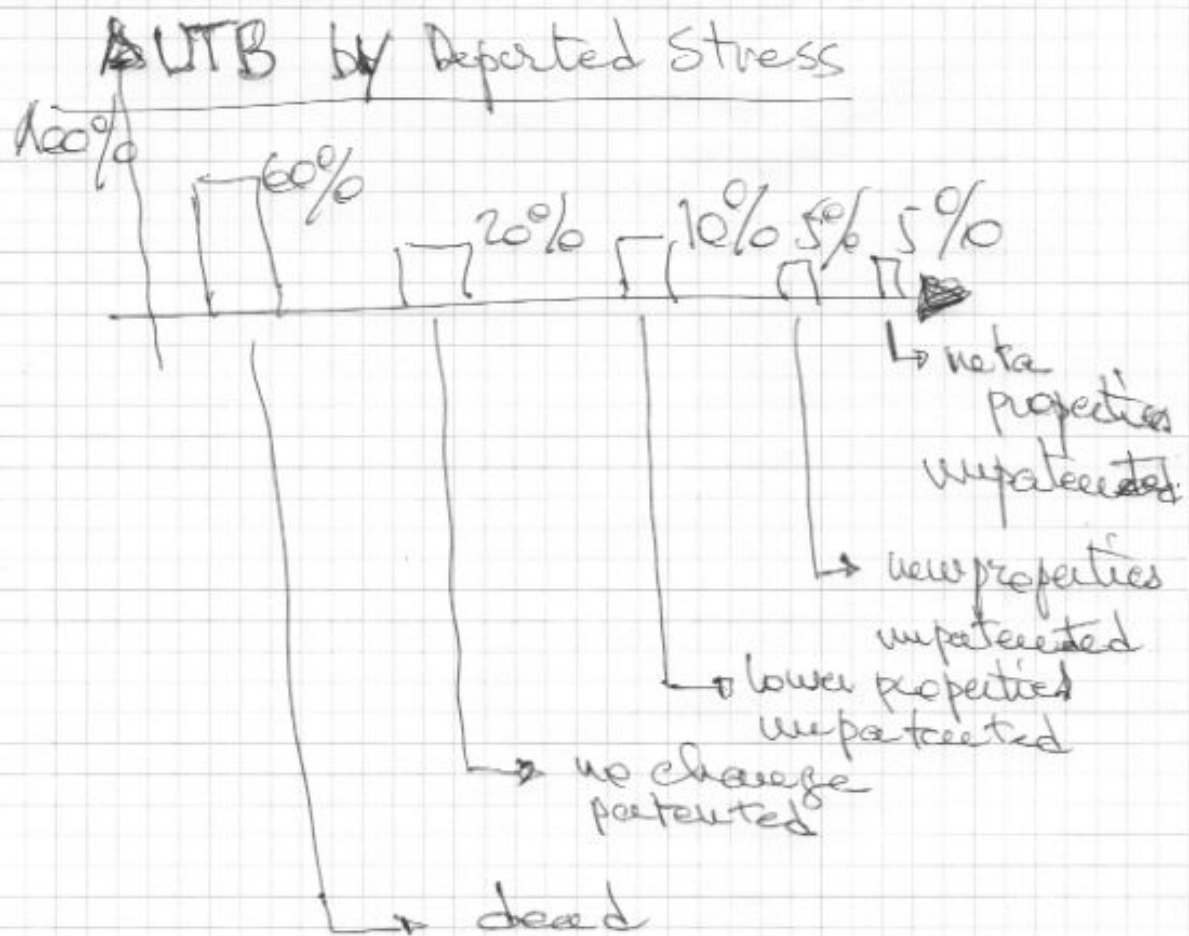 AUTB by Departed Stress
100%
60%
20%
10%
5%
5%
meta
properties
unpatented
new properties
unpatented
lower properties
unpatented
no change
patented
dead